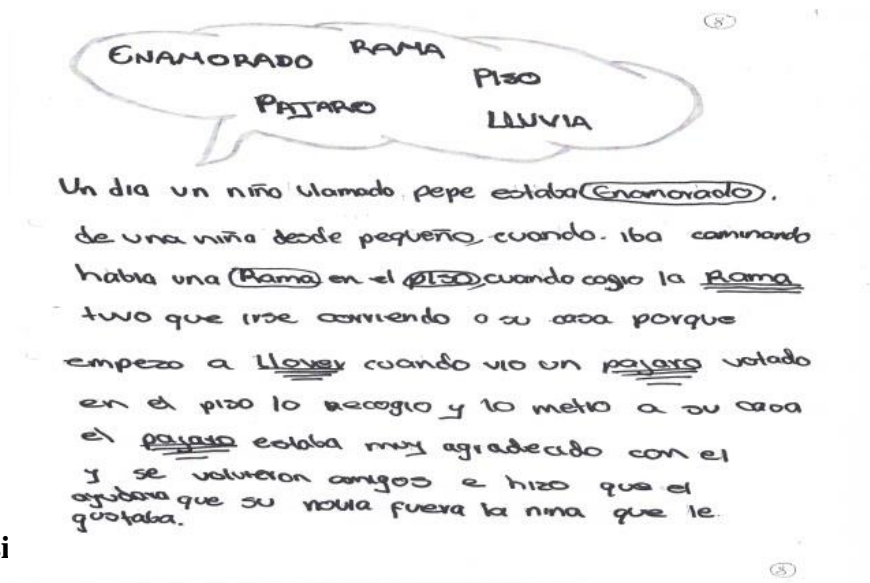 8
ENAMORADO RAMA
PISO
PAJARO
LLUVIA
Un dia un niño llamado pepe estaba Enamorado.
de una niña desde pequeño, cuando. iba caminando
habia una Rama en el PISO, cuando cogio la Rama
tuvo que irse corriendo a su casa porque
empezo a Llover cuando vio un pajaro votado
en el piso lo recogio y lo metio a su casa
el pajaro estaba muy agradecido con el
y se volvieron amigos e hizo que el
ayudara que su novia fuera la nina que le
gustaba.
i
8